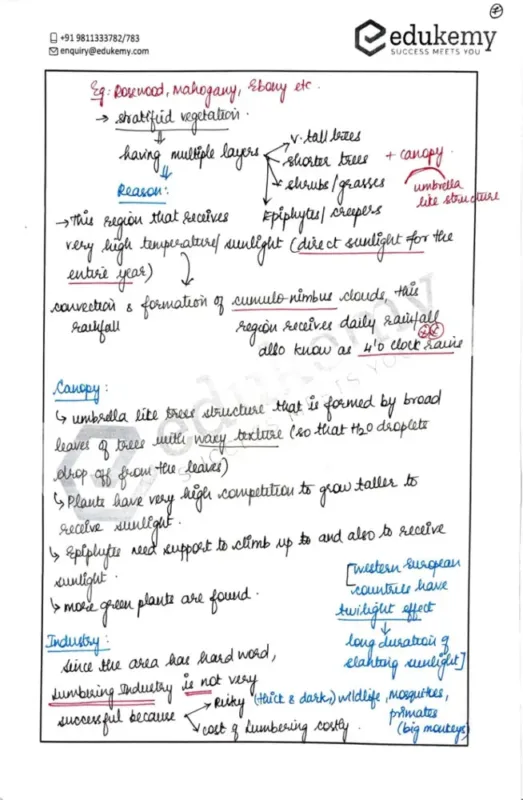 +91 9811333782/783
enquiry@edukemy.com
edukemy
SUCCESS MEETS YOU
Eg: Rosewood, Mahogany, Ebony etc.
→ stratified vegetation.
having multiple layers
v. tall trees
shorter trees
shrubs/grasses
Epiphytes/creepers
+ canopy
umbrella
like structure
Reason:
→ This region that receives
very high temperature/sunlight (direct sunlight for the
entire year)
convection & formation of cumulo-nimbus clouds, this
rainfall
region receives daily rainfall
also know as 4'o clock rains
Canopy:
↳ umbrella like trees structure that is formed by broad
leaves of trees with waxy texture (so that H2O droplets
drop off from the leaves)
↳ Plants have very high competition to grow taller to
receive sunlight.
↳ Epiphytes need support to climb up to and also to receive
sunlight.
↳ more green plants are found.
[Western European
countries have
twilight effect
↓
long duration of
slanting sunlight]
Industry:
since the area has hard word,
Lumbering Industry is not very
successful because
→ Risky (thick & dark) wildlife, mosquitoes,
primates
(big monkeys)
→ cost of Lumbering costly.
edukemy
SUCCESS MEETS YOU